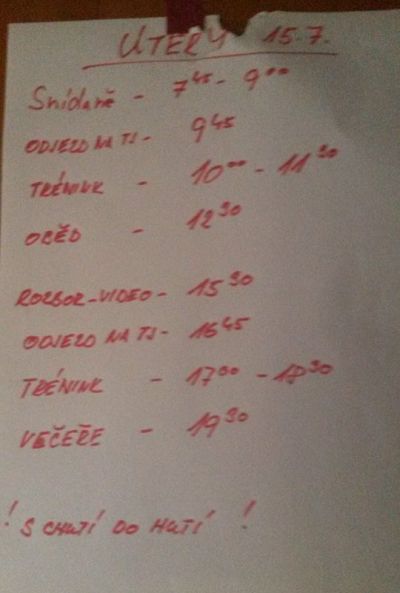 ÚTERÝ 15.7.
Snídaně - 7 45 - 9 00
ODJEZD NA TJ - 9 45
TRÉNINK - 10 00 - 11 30
OBĚD - 12 30
ROZBOR - VIDEO - 15 30
ODJEZD NA TJ - 16 45
TRÉNINK - 17 00 - 18 30
VEČEŘE - 19 30
! S CHUTÍ DO HUTÍ !